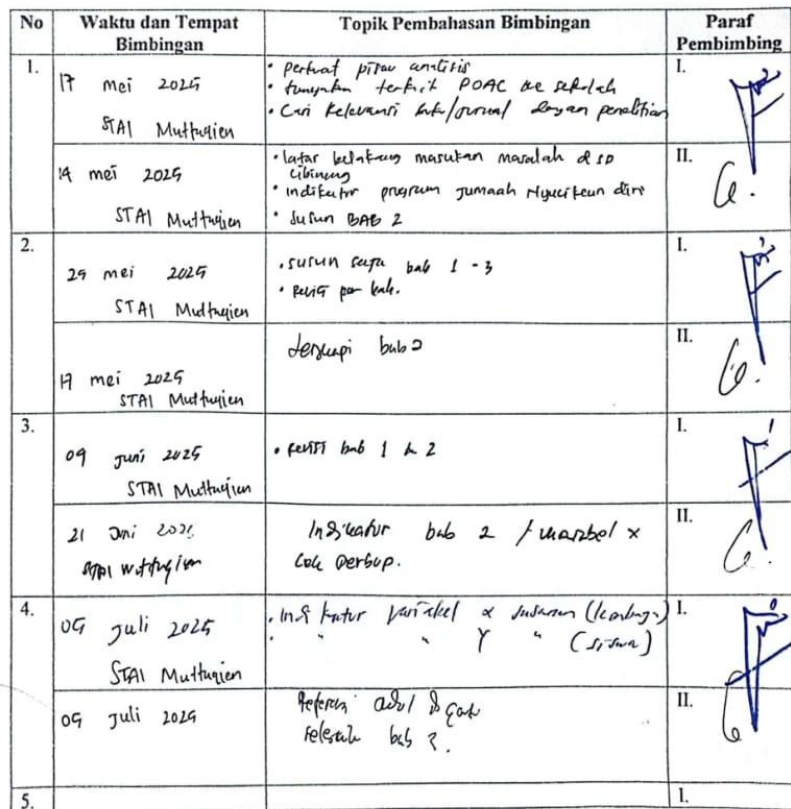 No Waktu dan Tempat Bimbingan Topik Pembahasan Bimbingan Paraf Pembimbing
1.
17 mei 2025
STAI Muttaqien
• perkuat pisau analisis
• tanyakan terkait POAC ke sekolah
• Cari Relevansi buku/jurnal dengan penelitian
I.
14 mei 2025
STAI Muttaqien
• latar belakang masukan masalah di SD Cibinong
• indikator program Jumaah Nyucikeun diri
• Susun BAB 2
II.
2.
25 mei 2025
STAI Muttaqien
• susun bab 1 - 3
• Revisi per bab.
I.
17 mei 2025
STAI Muttaqien
bab 2
II.
3.
09 juni 2025
STAI Muttaqien
• Revisi bab 1 & 2
I.
21 Juni 2025
STAI Muttaqien
Indikator bab 2 / variabel x
II.
4.
05 juli 2025
STAI Muttaqien
• Indikator variabel x (lembaga)
" " Y " (siswa)
I.
05 Juli 2025
bab 2.
II.
5.
I.